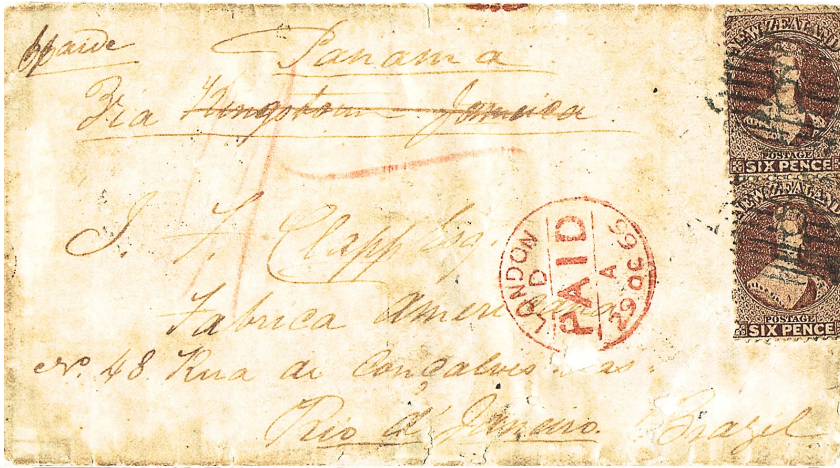 ppaide Panama
Via Kingstown Jamaica
J. F. Clapp Esq.
Fabrica Americana
No. 48 Rua de Gonçalves Dias
Rio de Janeiro Brazil
LONDON
D
PAID
A
29 OC 66
NEW ZEALAND
POSTAGE
SIX PENCE
NEW ZEALAND
POSTAGE
SIX PENCE